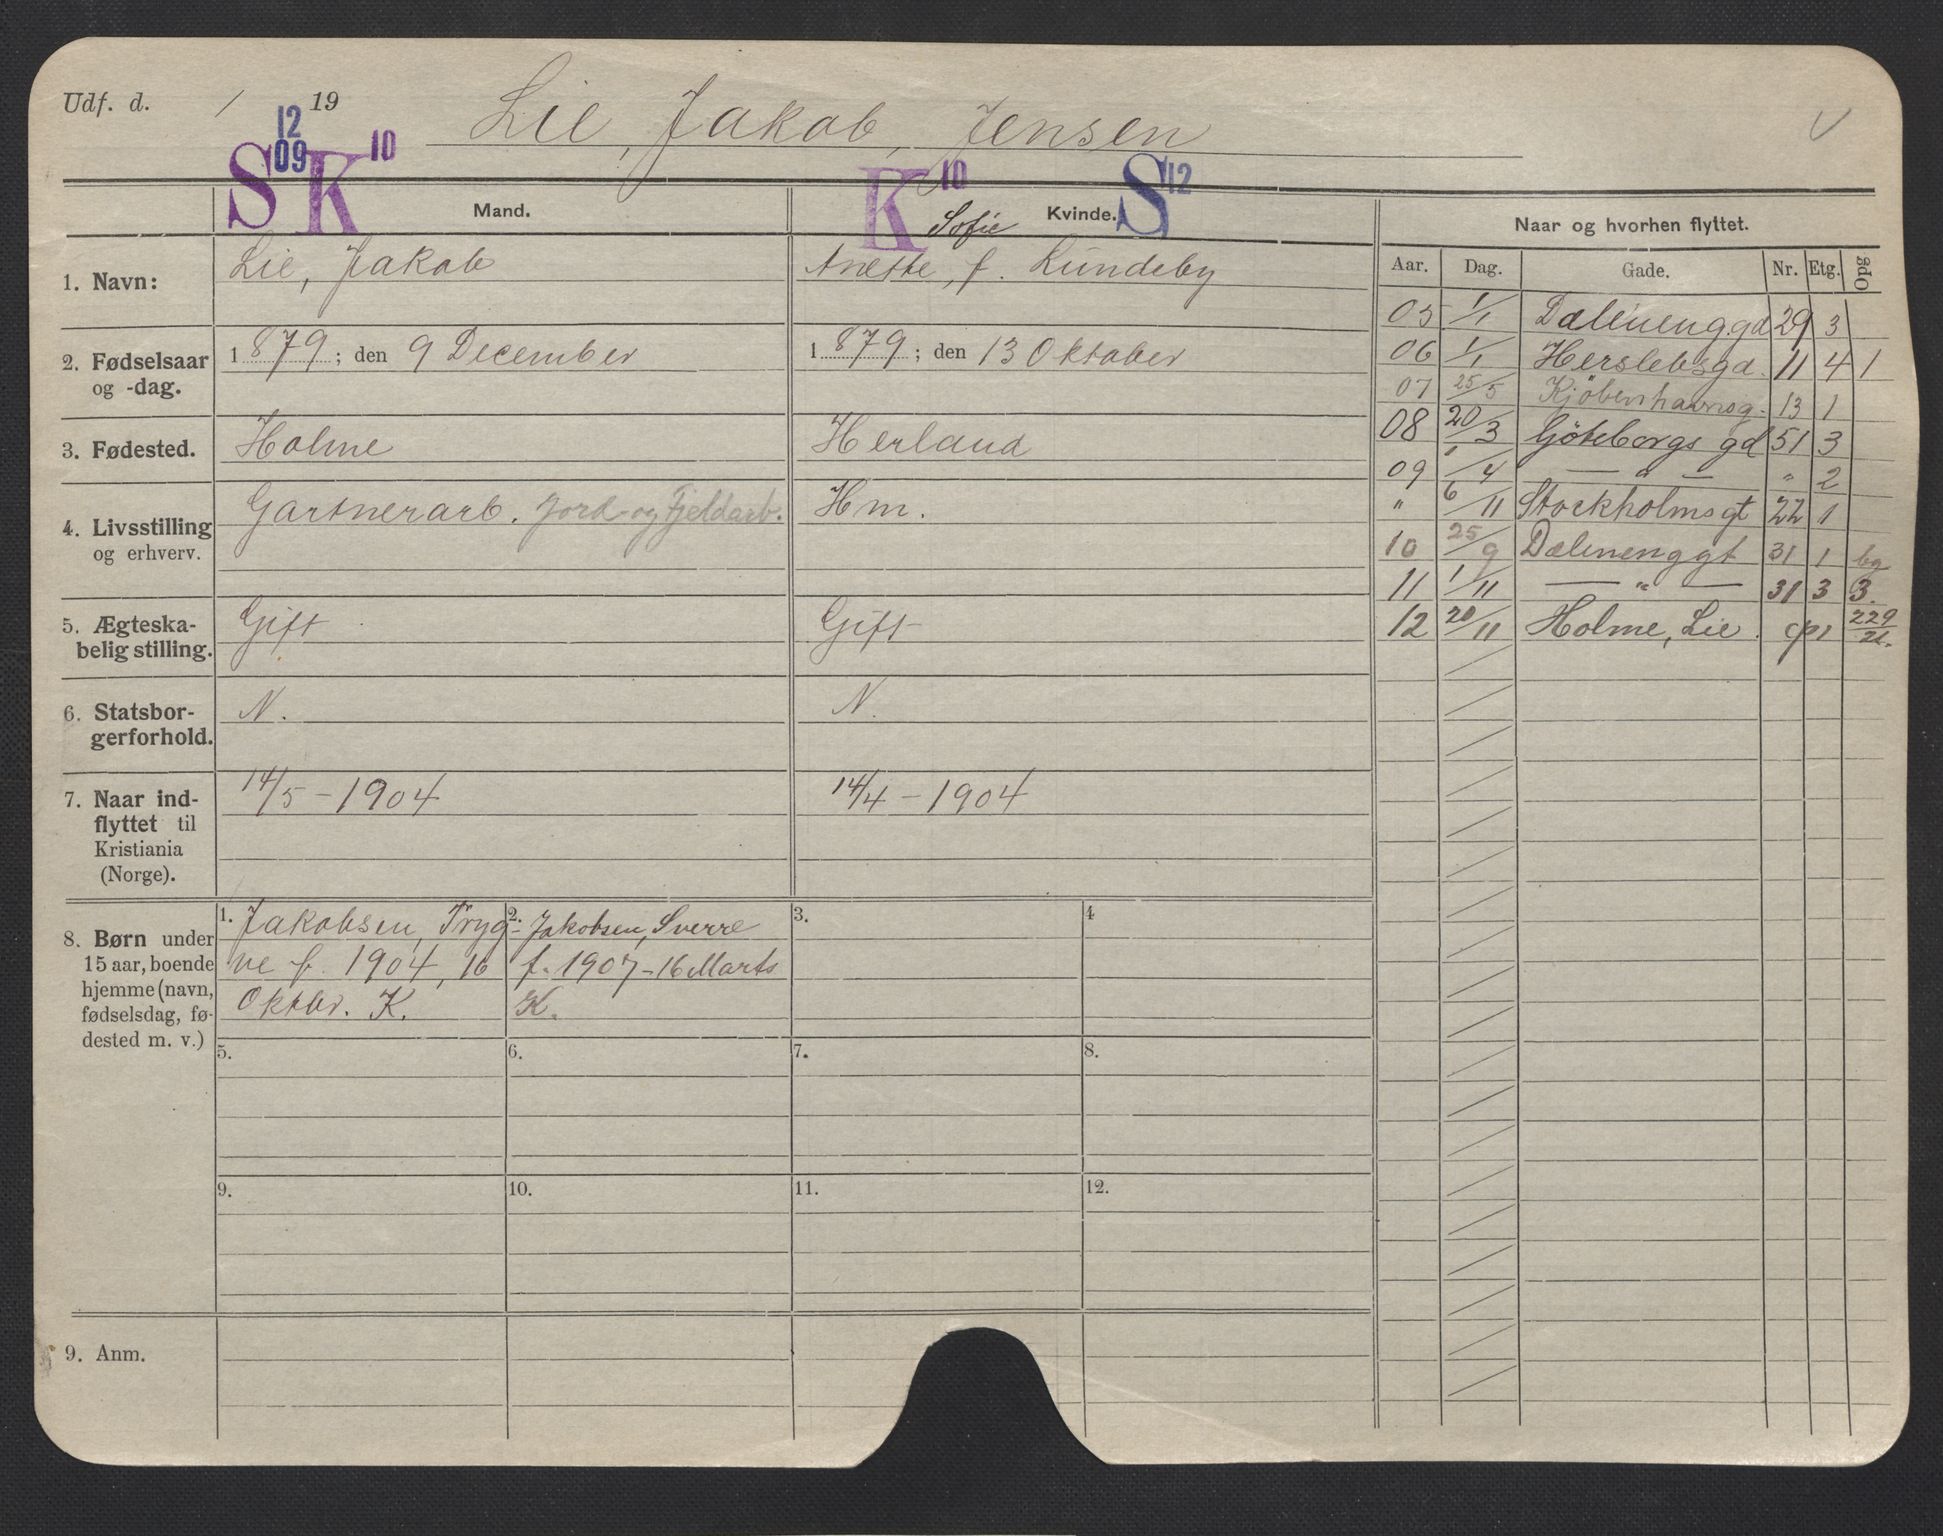 Udf. d. / 19 Lie, Jakob, Jensen
12 09
S K 10 K 10 S 12
Mand. Kvinde. Sofie
Naar og hvorhen flyttet.
1. Navn: Lie, Jakob Anette, f. Lundeby
Aar. Dag. Gade. Nr. Etg. Opg
05 1/1 Dælenenggd 29 3
2. Fødselsaar 1879; den 9 December 1879; den 13 Oktober
og -dag.
06 1/1 Herslebsgd. 11 4 1
07 25/5 Kjöbenhavnsg. 13 1
3. Fødested. Holme Herland
08 20/3 Göteborgs gd 51 3
09 1/4 — " — " 2
4. Livsstilling Gartnerarb. Jord- og Fjeldarb. Hm.
og erhverv.
" 6/11 Stockholmsgt 22 1
10 25/9 Dælenenggt 31 1 bg
11 1/11 — " — 31 3 3.
5. Ægteska- Gift Gift
belig stilling.
12 20/11 Holme, Lie. 229/21.
6. Statsbor- N. N.
gerforhold.
7. Naar ind- 14/5 - 1904 14/4 - 1904
flyttet til
Kristiania
(Norge).
8. Børn under
15 aar, boende
hjemme (navn,
fødselsdag, fø-
dested m. v.)
1. Jakobsen, Tryg-
ve f. 1904, 16
Oktbr. K.
2. Jakobsen, Sverre
f. 1907 - 16 Marts
K.
3. 4
5. 6. 7. 8.
9. 10. 11. 12.
9. Anm.